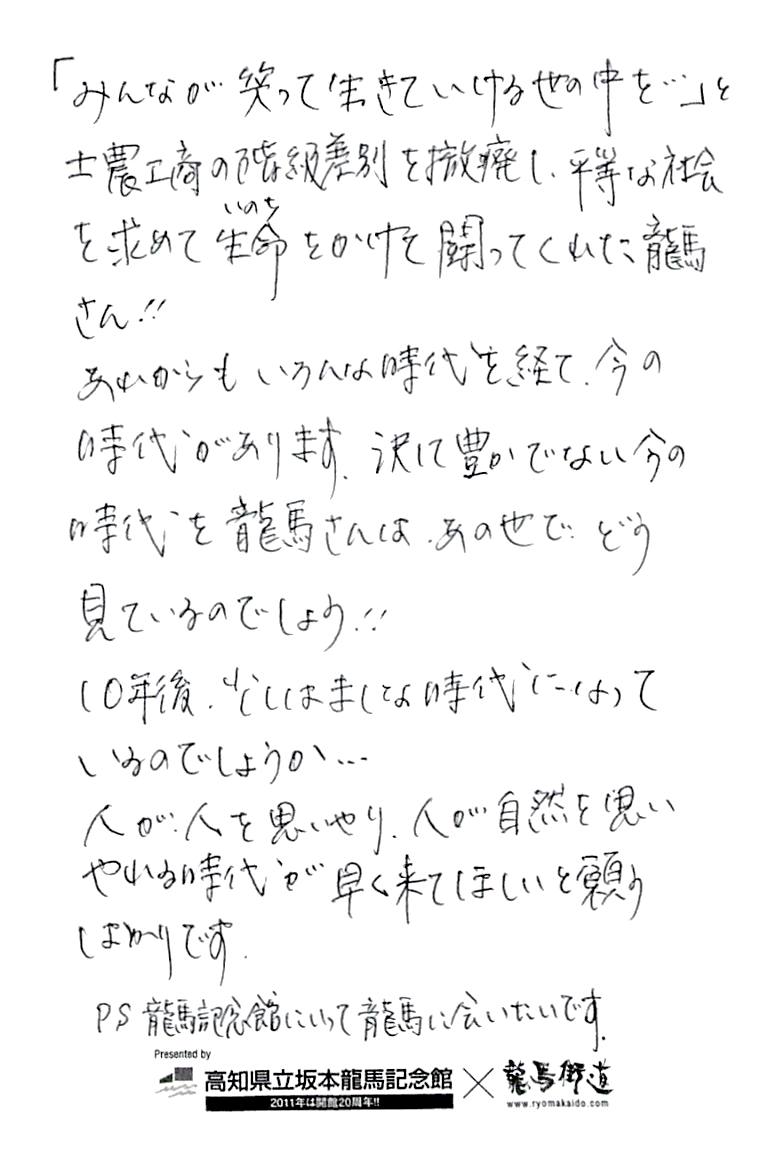 「みんなが笑って生きていける世の中を…」と
士農工商の階級差別を撤廃し、平等な社会
いのち
を求めて生命をかけて闘ってくれた龍馬
さん!!
あれからもいろんな時代を経て、今の
時代があります。決して豊かでない今の
時代を龍馬さんは、あの世で どう
見ているのでしょう!!
10年後、少しはましな時代になって
いるのでしょうか…
人が、人を思いやり、人が自然を思い
やれる時代が早く来てほしいと願う
ばかりです。
PS 龍馬記念館にいって龍馬に会いたいです。
Presented by
高知県立坂本龍馬記念館 × 龍馬街道
2011年は開館20周年!! www.ryomakaido.com